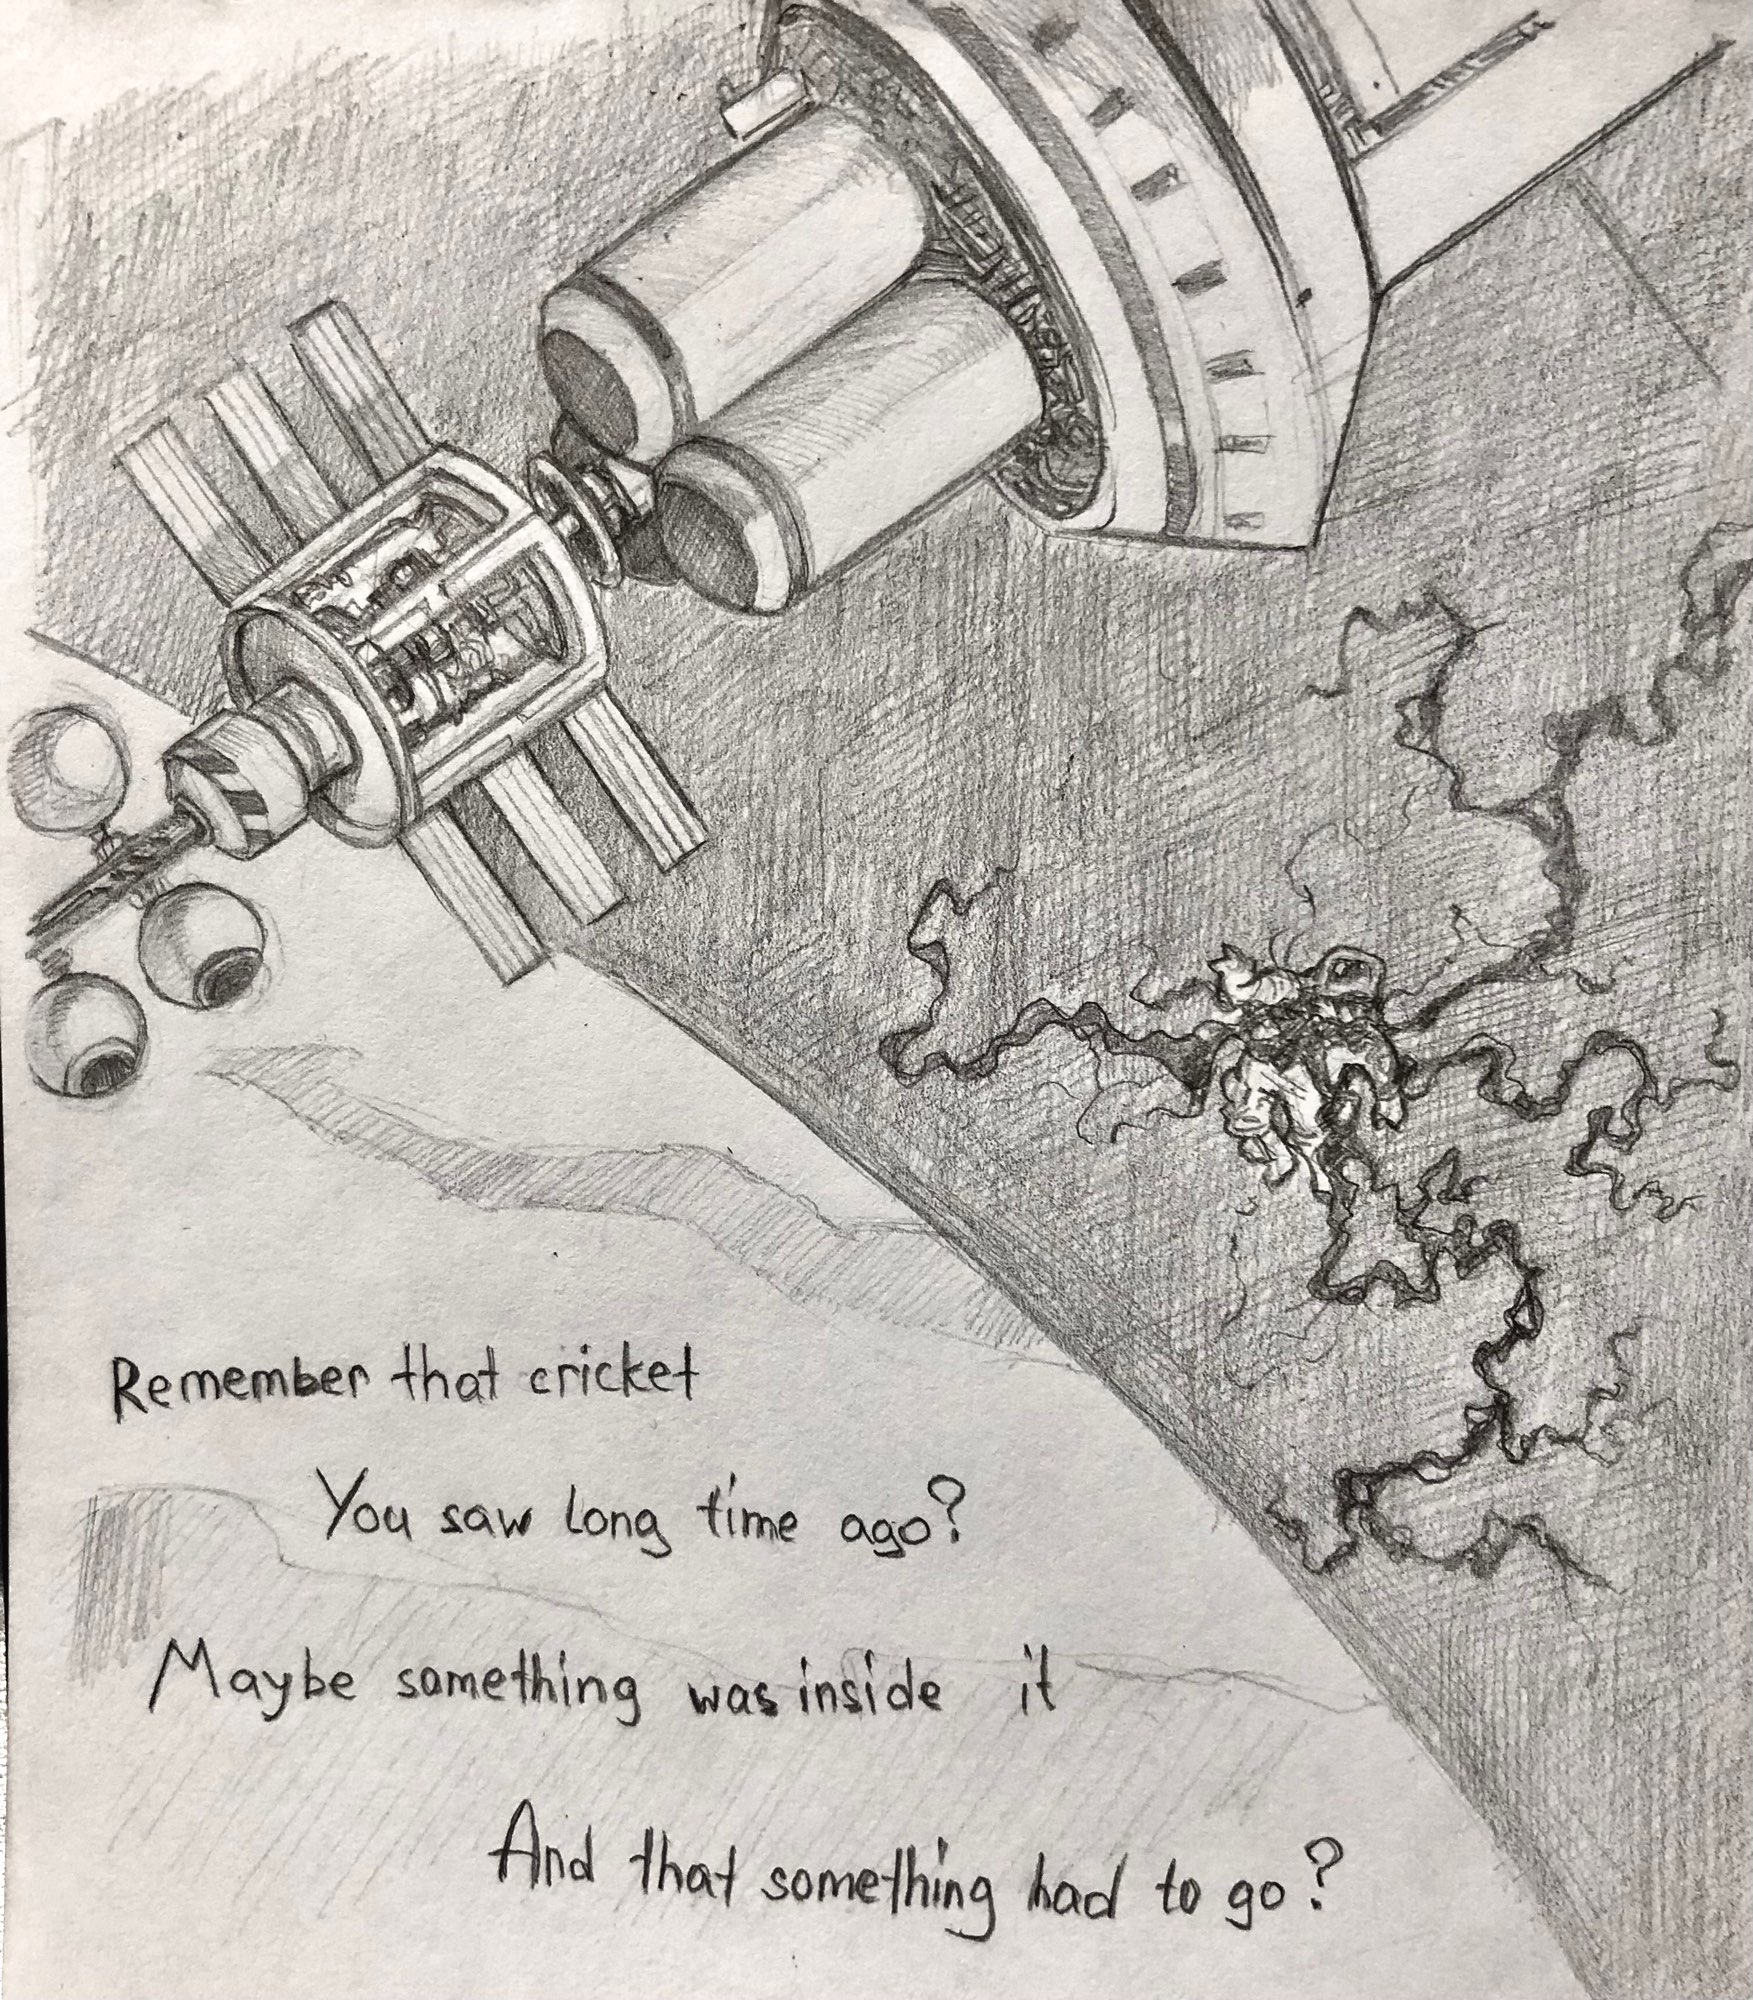 Remember that cricket
You saw long time ago?
Maybe something was inside it
And that something had to go?